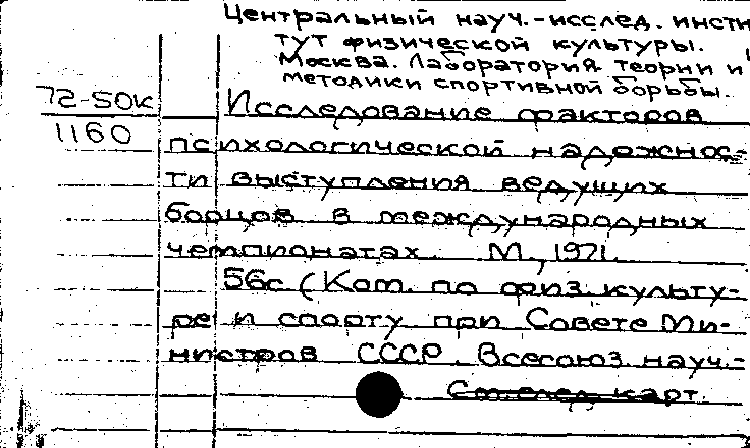 Центральный науч.-исслед. инсти
тут физической культуры.
Москва. Лаборатория теории и
методики спортивной борьбы.
72-50к
1160
Исследование факторов
психологической надежнос-
ти выступления ведущих
борцов в международных
чемпионатах. М., 1971.
56с (Ком. по физ. культу-
ре и спорту при Совете Ми-
нистров СССР. Всесоюз. науч.-
См. след. карт.